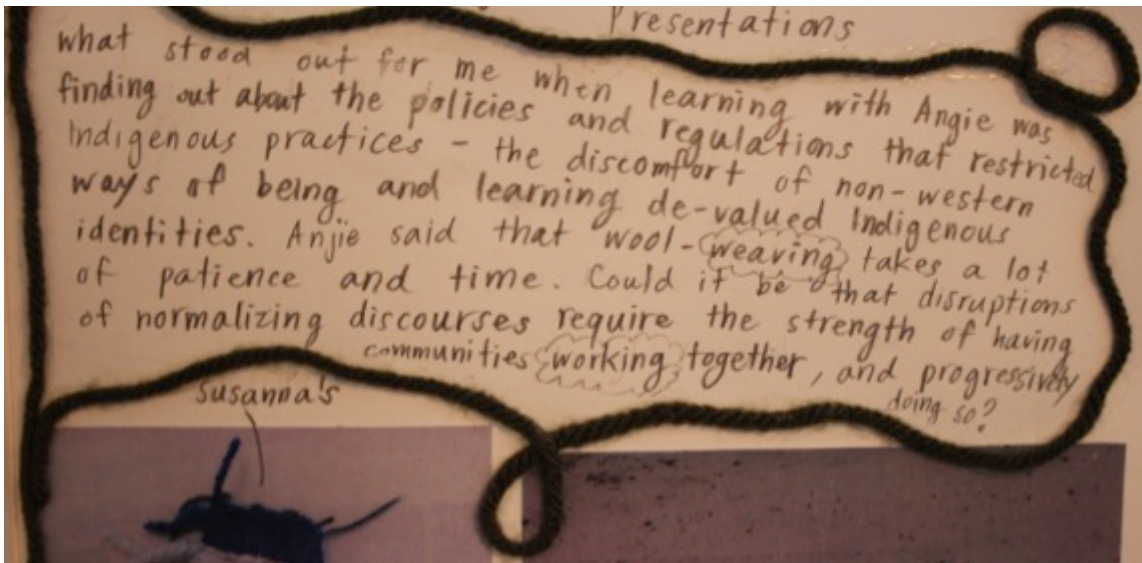 Presentations
what stood out for me when learning with Angie was
finding out about the policies and regulations that restricted
Indigenous practices - the discomfort of non-western
ways of being and learning de-valued Indigenous
identities. Anjie said that wool-weaving takes a lot
of patience and time. Could it be that disruptions
of normalizing discourses require the strength of having
communities working together, and progressively
doing so?
Susanna's